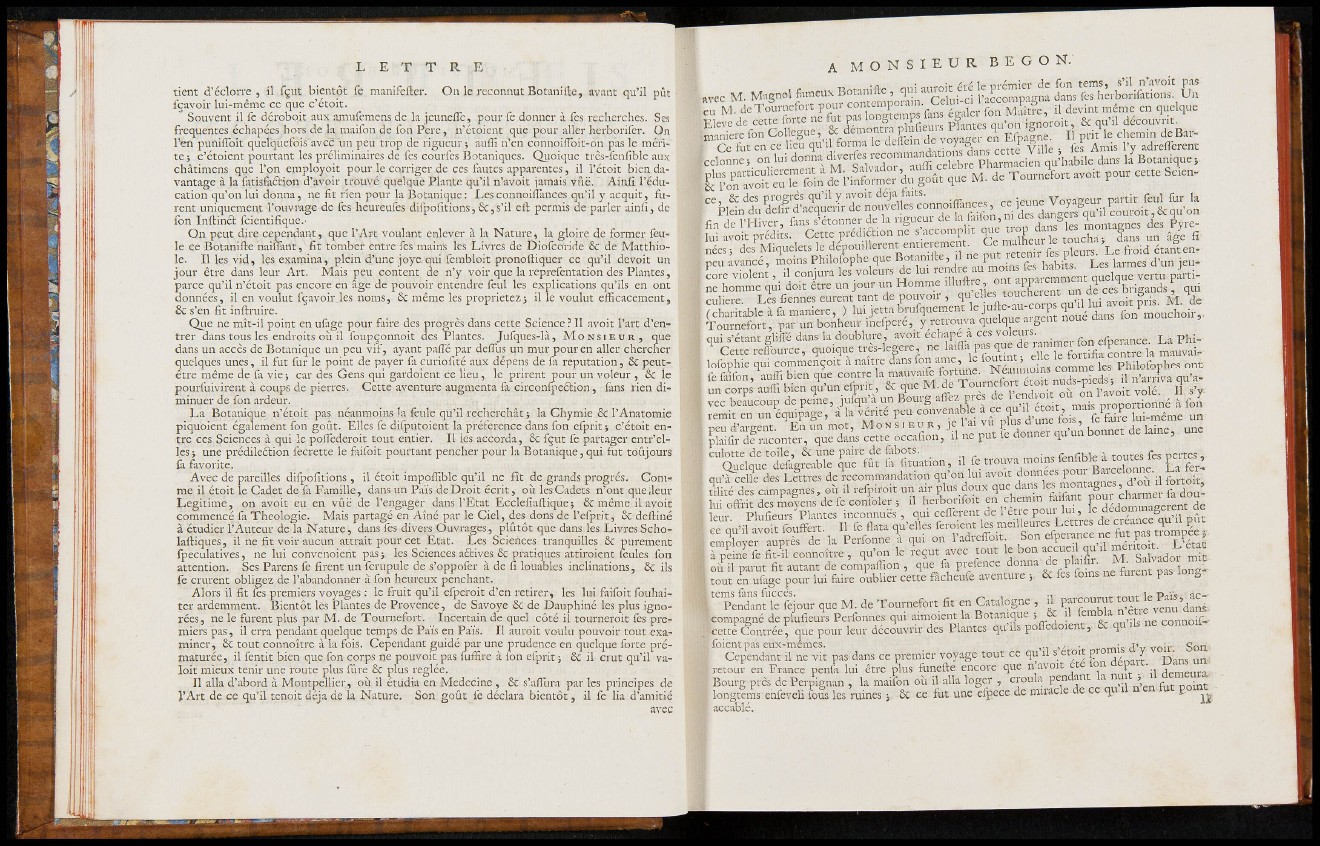 LETTRE
tient d'éclorre , il ſçut bientôt ſe manifeſter. On le reconnut Botaniſte, avant qu'il pût
ſçavoir lui-même ce que c'étoit.
Souvent il ſe déroboit aux amuſemens de la jeuneſſe, pour ſe donner à ſes recherches. Ses
frequentes échapées hors de la maiſon de ſon Pere, n'étoient que pour aller herboriſer. On
l'en puniſſoit quelquefois avec un peu trop de rigueur; auſſi n'en connoiſſoit-on pas le méri-
te; c'étoient pourtant les préliminaires de ſes courſes Botaniques. Quoique très-ſenſible aux
châtimens que l'on employoit pour le corriger de ces fautes apparentes, il l'étoit bien da-
vantage à la ſatisfaction d'avoir trouvé quelque Plante qu'il n'avoit jamais vûë. Ainſi l'édu-
cation qu'on lui donna, ne fit rien pour la Botanique: Les connoiſſances qu'il y acquit, fu-
rent uniquement l'ouvrage de ſes heureuſes diſpoſitions, &, s'il eſt permis de parler ainſi, de
ſon Inſtinct ſcientifique.
On peut dire cependant, que l'Art voulant enlever à la Nature, la gloire de former ſeu-
le ce Botaniſte naiſſant, fit tomber entre ſes mains les Livres de Dioſcoride & de Matthio-
le. Il les vid, les examina, plein d'une joye qui ſembloit pronoſtiquer ce qu'il devoit un
jour être dans leur Art. Mais peu content de n'y voir que la repreſentation des Plantes,
parce qu'il n'étoit pas encore en âge de pouvoir entendre ſeul les explications qu'ils en ont
données, il en voulut ſçavoir les noms, & même les proprietez; il le voulut efficacement,
& s'en fit inſtruire.
Que ne mit-il point en uſage pour faire des progrès dans cette Science? Il avoit l'art d'en-
trer dans tous les endroits où il ſoupçonnoit des Plantes. Juſques-là, MONSIEUR, que
dans un accès de Botanique un peu vif, ayant paſſé par deſſus un mur pour en aller chercher
quelques unes, il fut ſur le point de payer ſa curioſité aux dépens de ſa reputation, & peut-
être même de ſa vie; car des Gens qui gardoient ce lieu, le prirent pour un voleur, & le
pourſuivirent à coups de pierres. Cette aventure augmenta ſa circonſpection, ſans rien di-
minuer de ſon ardeur.
La Botanique n'étoit pas néanmoins la ſeule qu'il recherchât; la Chymie & l'Anatomie
piquoient également ſon goût. Elles ſe diſputoient la préference dans ſon eſprit; c'étoit en-
tre ces Sciences à qui le poſſederoit tout entier. Il les accorda, & ſçut ſe partager entr'el-
les; une prédilection ſecrette le faiſoit pourtant pencher pour la Botanique, qui fut toûjours
ſa favorite.
Avec de pareilles diſpoſitions, il étoit impoſſible qu'il ne fit de grands progrés. Com-
me il étoit le Cadet de ſa Famille, dans un Païs de Droit écrit, où les Cadets n'ont que leur
Legitime, on avoit eu en vûë de l'engager dans l'Etat Eccleſiaſtique; & même il avoit
commencé ſa Theologie. Mais partagé en Aîné par le Ciel, des dons de l'eſprit, & deſtiné
à étudier l'Auteur de la Nature, dans ſes divers Ouvrages, plûtôt que dans les Livres Scho-
laſtiques, il ne fit voir aucun attrait pour cet Etat. Les Sciences tranquilles & purement
ſpeculatives, ne lui convenoient pas; les Sciences actives & pratiques attiroient ſeules ſon
attention. Ses Parens ſe firent un ſcrupule de s'oppoſer à de ſi louables inclinations, & ils
ſe crurent obligez de l'abandonner à ſon heureux penchant.
Alors il fit ſes premiers voyages: le fruit qu'il eſperoit d'en retirer, les lui faiſoit ſouhai-
ter ardemment. Bientôt les Plantes de Provence, de Savoye & de Dauphiné les plus igno-
rées, ne le furent plus par M. de Tournefort. Incertain de quel côté il tourneroit ſes pre-
miers pas, il erra pendant quelque temps de Païs en Païs. Il auroit voulu pouvoir tout exa-
miner, & tout connoître à la fois. Cependant guidé par une prudence en quelque ſorte pré-
maturée, il ſentit bien que ſon corps ne pouvoit pas ſuffire à ſon eſprit; & il crut qu'il va-
loit mieux tenir une route plus ſûre & plus reglée.
Il alla d'abord à Montpellier, où il étudia en Medecine, & s'aſſûra par les principes de
l'Art de ce qu'il tenoit déja de la Nature. Son goût ſe déclara bientôt, il ſe lia d'amitié
avec
A MONSIEUR BEGON.
avec M. Magnol fameux Botaniſte, qui auroit été le prémier de ſon tems, s'il n'avoit pas
eu M. de Tournefort pour contemporain. Celui-ci l'accompagna dans ſes herboriſations. Un
Eleve de cette ſorte ne fut pas longtemps ſans égaler ſon Maître, il devint même en quelque
maniere ſon Collegue, & démontra pluſieurs Plantes qu'on ignoroit, & qu'il découvrit.
Ce fut en ce lieu qu'il forma le deſſein de voyager en Eſpagne. Il prit le chemin de Bar-
celonne; on lui donna diverſes recommandations dans cette Ville; ſes Amis l'y adreſſerent
plus particulierement à M. Salvador, auſſi celebre Pharmacien qu'habile dans la Botanique;
& l'on avoit eu le ſoin de l'informer du goût que M. de Tournefort avoit pour cette Scien-
ce, & des progrès qu'il y avoit déja faits.
Plein du deſir d'acquerir de nouvelles connoiſſances, ce jeune Voyageur partit ſeul ſur la
fin de l'Hiver, ſans s'étonner de la rigueur de la ſaiſon, ni des dangers qu'il couroit, & qu'on
lui avoit prédits. Cette prédiction ne s'accomplit que trop dans les montagnes des Pyre-
nées; des Miquelets le dépouillerent entierement. Ce malheur le toucha; dans un âge ſi
peu avancé, moins Philoſophe que Botaniſte, il ne put retenir ſes pleurs. Le froid étant en-
core violent, il conjura les voleurs de lui rendre au moins ſes habits. Les larmes d'un jeu-
ne homme qui doit être un jour un Homme illuſtre, ont apparemment quelque vertu parti-
culiere. Les ſiennes eurent tant de pouvoir, qu'elles toucherent un de ces brigands, qui
(charitable à ſa maniere,) lui jetta bruſquement le juſte-au-corps qu'il lui avoit pris. M. de
Tournefort, par un bonheur ineſperé, y retrouva quelque argent noué dans ſon mouchoir,
qui s'étant gliſſé dans la doublure, avoit échapé à ces voleurs.
Cette reſſource, quoique très-legere, ne laiſſa pas que de ranimer ſon eſperance. La Phi-
loſophie qui commençoit à naître dans ſon ame, le ſoutint; elle le fortifia contre la mauvai-
ſe ſaiſon, auſſi bien que contre la mauvaiſe fortune. Néanmoins comme les Philoſophes ont
un corps auſſi bien qu'un eſprit, & que M. de Tournefort étoit nuds-pieds; il n'arriva qu'a-
vec beaucoup de peine, juſqu'à un Bourg aſſez près de l'endroit où on l'avoit volé. Il s'y
remit en un équipage, à la vérité peu convenable à ce qu'il étoit, mais proportionné à ſon
peu d'argent. En un mot, MONSIEUR, je l'ai vû plus d'une fois, ſe faire lui-même un
plaiſir de raconter, que dans cette occaſion, il ne put ſe donner qu'un bonnet de laine, une
culotte de toile, & une paire de ſabots.
Quelque deſagreable que fût ſa ſituation, il ſe trouva moins ſenſible à toutes ſes pertes,
qu'à celle des Lettres de recommandation qu'on lui avoit données pour Barcelonne. La fer-
tilité des campagnes, où il reſpiroit un air plus doux que dans les montagnes, d'où il ſortoit,
lui offrit des moyens de ſe conſoler; il herboriſoit en chemin faiſant pour charmer ſa dou-
leur. Pluſieurs Plantes inconnuës, qui ceſſerent de l'être pour lui, le dédommagerent de
ce qu'il avoit ſouffert. Il ſe flata qu'elles ſeroient les meilleures Lettres de créance qu'il pût
employer auprès de la Perſonne à qui on l'adreſſoit. Son eſperance ne fut pas trompée;
à peine ſe fit-il connoître, qu'on le reçut avec tout le bon accueil qu'il méritoit. L'état
où il parut fit autant de compaſſion, que ſa preſence donna de plaiſir. M. Salvador mit
tout en uſage pour lui faire oublier cette fâcheuſe aventure; & ſes ſoins ne furent pas long-
tems ſans ſuccès.
Pendant le ſejour que M. de Tournefort fit en Catalogne, il parcourut tout le Païs, ac-
compagné de pluſieurs Perſonnes qui aimoient la Botanique; & il ſembla n'être venu dans
cette Contrée, que pour leur découvrir des Plantes qu'ils poſſedoient, & qu'ils ne connoiſ-
ſoient pas eux-mêmes.
Cependant il ne vit pas dans ce premier voyage tout ce qu'il s'étoit promis d'y voir. Son
retour en France penſa lui être plus funeſte encore que n'avoit été ſon départ. Dans un
Bourg près de Perpignan, la maiſon où il alla loger, croula pendant la nuit; il demeura
longtems enſeveli ſous les ruines; & ce fut une eſpece de miracle de ce qu'il n'en fut point
accablé.
Il